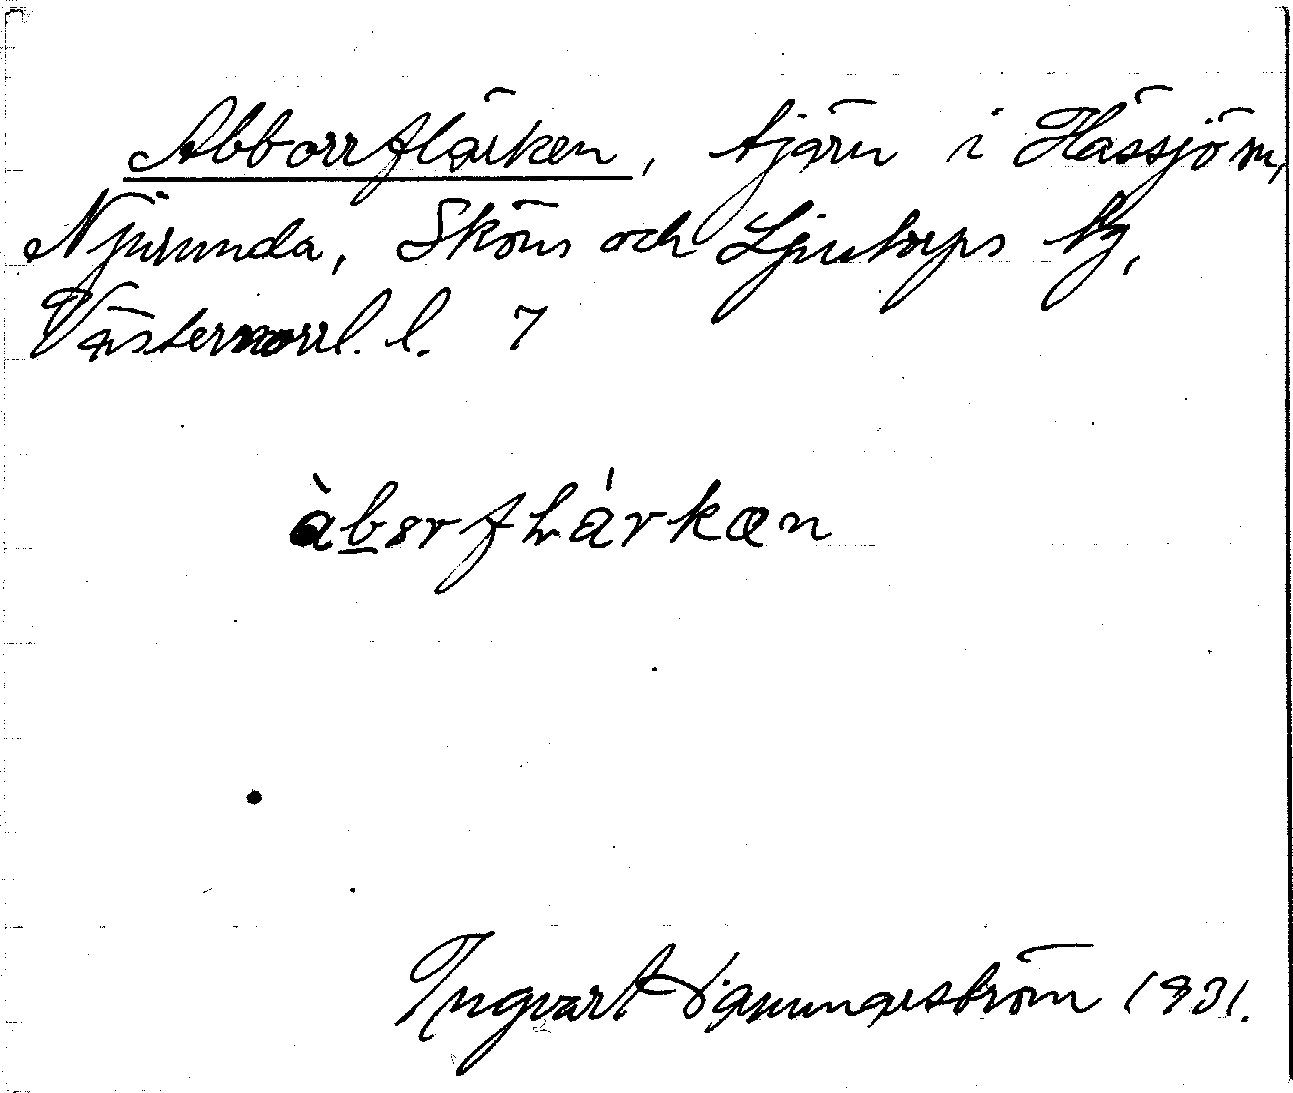 Abborrflärken, tjärn i Hässjö sn,
Njurunda, Sköns och Ljustorps tg,
Västernorrl. l. 7
àbərflárkæn
Ingvart 1931.